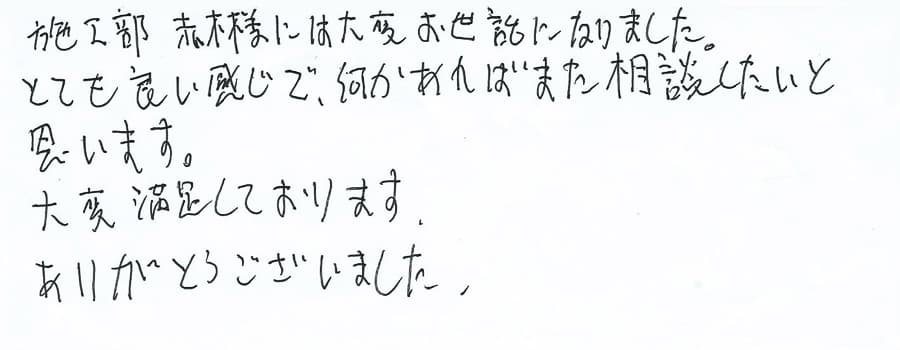 施工部 赤木様には大変お世話になりました。
とても良い感じで、何かあればまた相談したいと
思います。
大変満足しております.
ありがとうございました.